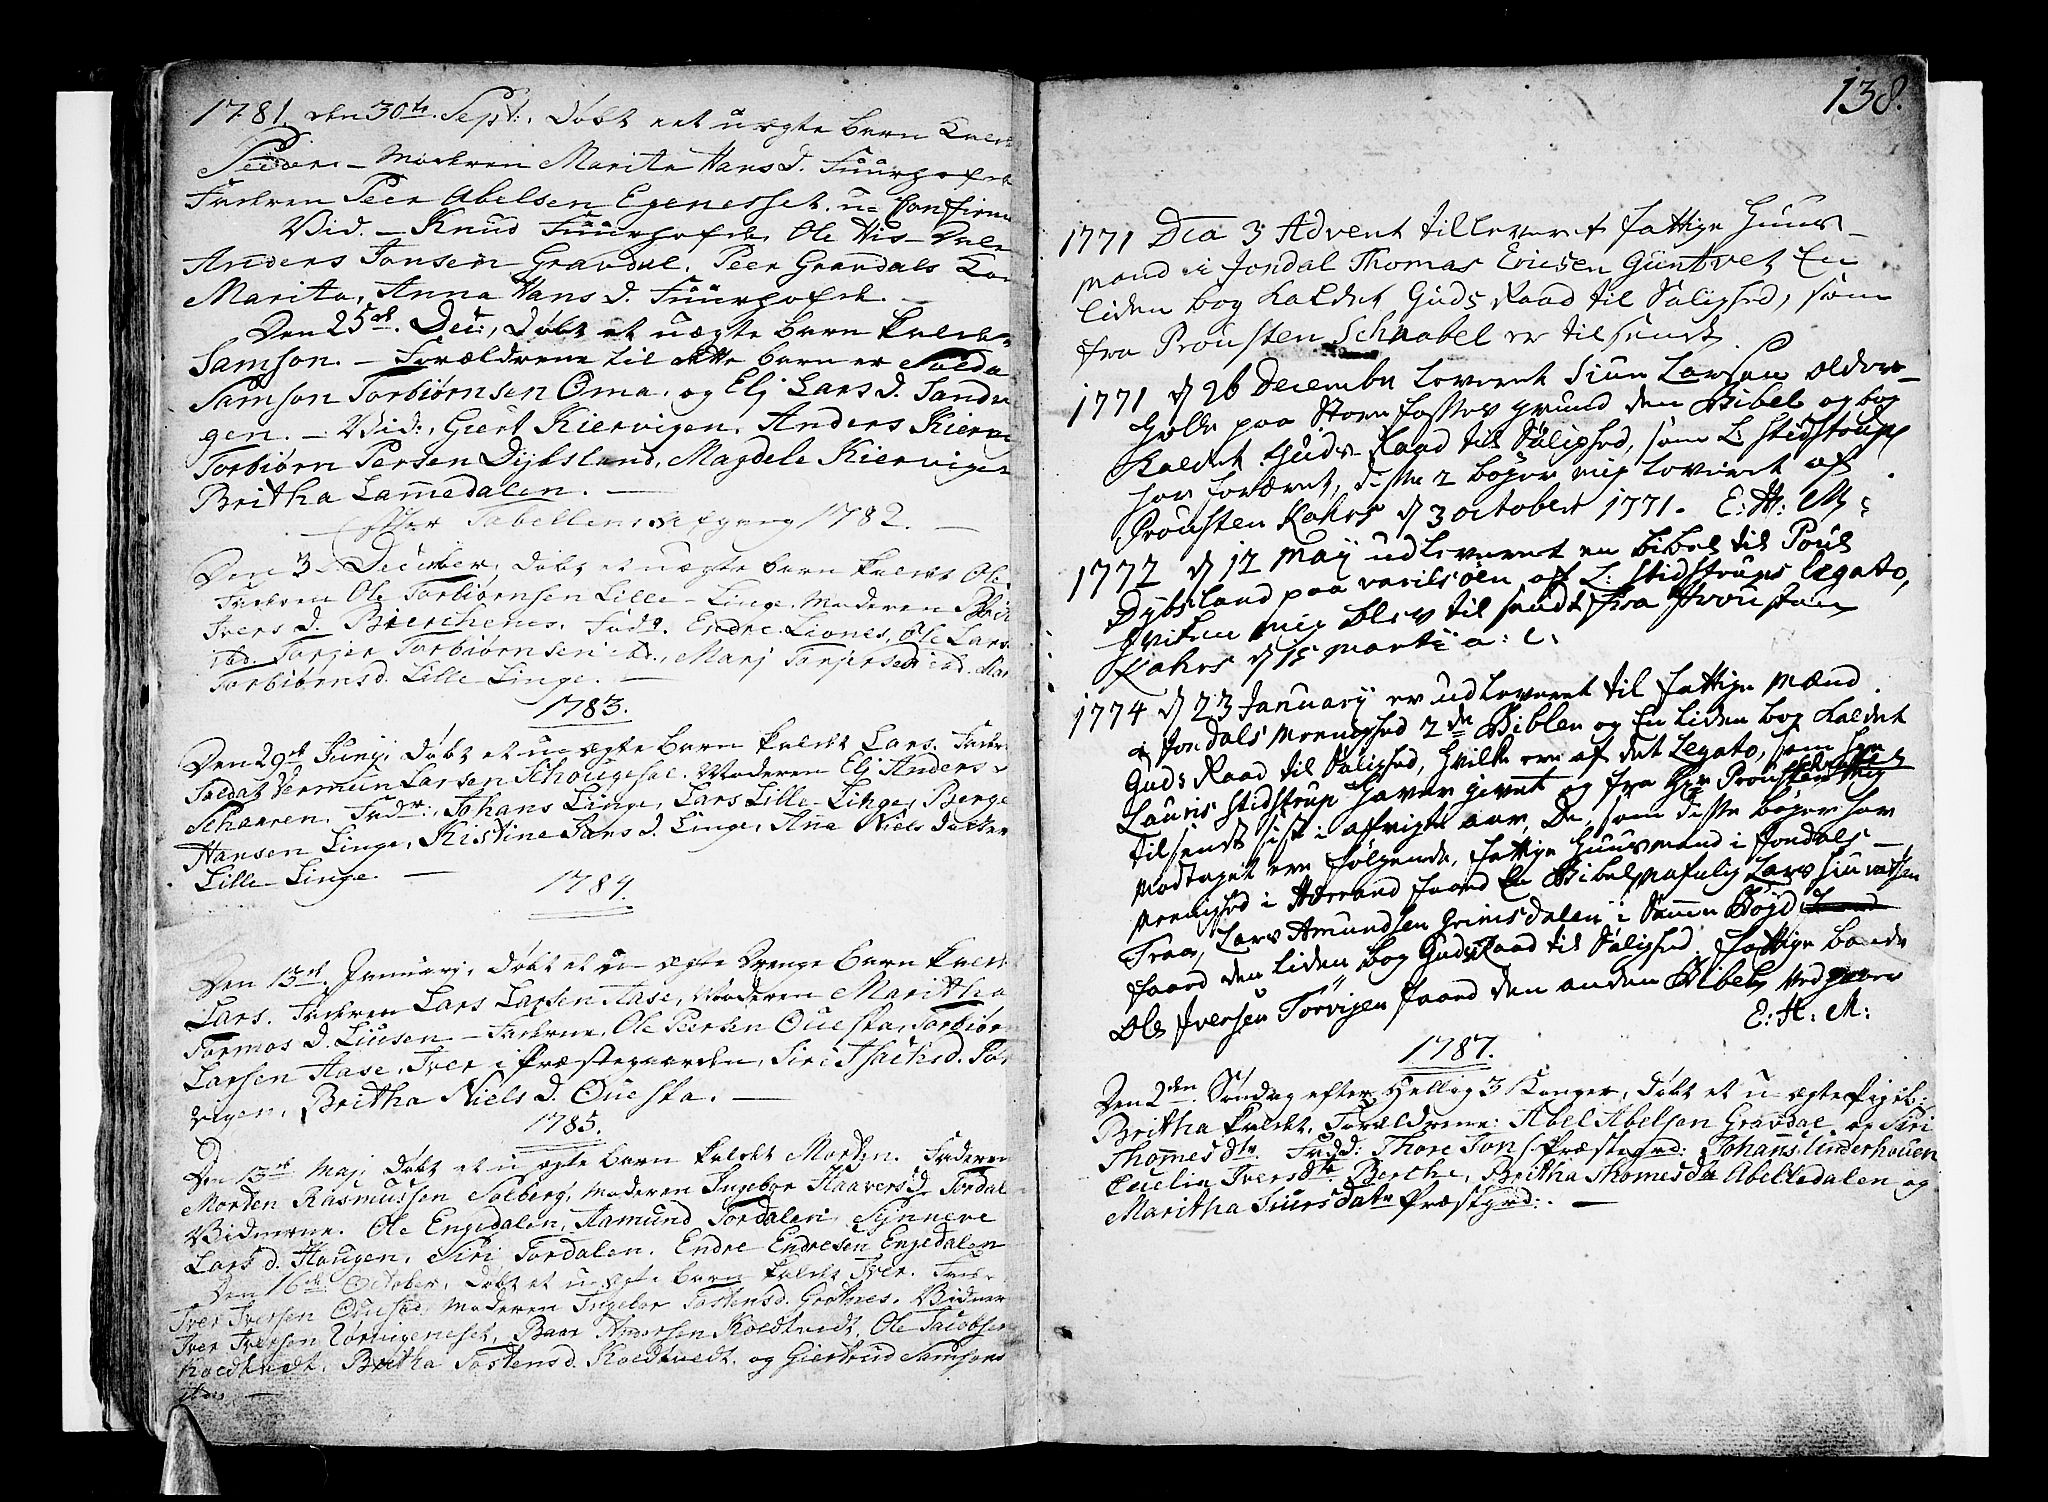 1781. den 30te. Sept:, Døbt eet uægte barn Kaldt
Peder. – Moderen Marita Hans d. Fuurhofde
Faderen Peer Abelsen Egenesset. u= Confirm
Vid. – Knud Fuurhofde, Ole Vis-Dal
Anders Jonsen Gravdal, Peer Gravdals Ko=
Marita, Anna Hans d. Fuurhofde. –
Den 25de. Dec:, Døbt et uægte barn kaldt
Samson. – Forældrene til dette barn er Solda
Samson Torbiørnsen Oma, og Elj Lars d. Sandv
gen. – Vid:, Giert Kiervigen, Anders Kierv
Torbiørn Persen Dybsland, Magdele Kiervigen
Britha Lammedalen. –
Efter Tabellens afgang 1782. –
Den 3. December, Døbt et uægte barn kaldt Ole
Faderen Ole Torbiørnsen Lille-Linge, Moderen
Ivers d. Bierchenes. Fad. Endre Liones, Ole Lars
ibd. Torger Torbiørnsen ibd., Marj Torgersd. ibd. Mar
Torbiørnsd. Lille Linge. –
1783.
Den 29de Junij, Døbt et u=ægte barn kaldt Lars. Fader
Soldat Vermun Larsen Schougesæl. Moderen Elj Anders d
Schaaren. Fadr:, Johans Linge, Lars Lille-Linge, Berge
Hansen Linge, Kistine Lars d. Linge, Ana Niels datter
Lille Linge. –
1784.
Den 13de. Januarj, Døbt et u=ægte Drenge barn kaldt
Lars. Faderen Lars Larsen Aase, Moderen Maritha
Tormos d. Liusen – Fadderne, Ole Peersen Oueska, Torbiørn
Larsen Aase, Iver i Præstegaarden, Siri Isachs d. Tor
vigen, Britha Niels d. Oueska. –
1785.
Den 13de Maj, Døbt et u=ægte barn kaldt Morten. Faderen
Morten Rasmussen Solberg, Moderen Ingebor Haavers d. Jordal
Vidnerne. Ole Engedalen, Aamund Jordalen, Synneve
Lars d. Haugen, Siri Jordalen. Endre Endresen Engedalen
Den 16de October, Døbt et u=ægte barn kaldt Iver. Fad:
Iver Iversen Ouestad, Moderen Ingebor Tostensd. Grotnes. Vidner
Iver Iversen Torvigeneset, Baar Andersen Koedtvedt, Ole Jacobsen
Koedtvedt, Britha Tostensd. Koedtvedt, og Giertrud Samsons
dtr. –
138.
1771 Dca 3 Advent tilleveret fattige Huus-
mand i Jondal Thomas Ericsen Guntvet En
liden bog kaldet Guds Raad til Salighed, som
fra Prousten Schnabel er tilsendt.
1771 d 26 Decembr leveret Siur Larsen Oldere-
Helle paa Store fosses grund den Bibel og bog
kaldet Guds Raad til Salighed, som L: Stidstrup
har foræret, disse 2 bøger mig leveret af
Prousten Kahrs d 3 october 1771. E: H: M:
1772 d 12 Maij udleveret en bibel til Poul
Dybsland paa varilsøen af L: Stidstrups legato,
hvilken mig blev til sendt fra Prousten
Kahrs d 15 martii a: c:
1774 d 23 January er udleveret til fattige Mænd
i Jondals Meenighed 2de Bibler og En liden bog kaldet
Guds Raad til Salighed, hvilke ere af det Legato, som Hr
Lauris Stidstrup haver givet og fra Hr Prousten mig
tilsendt sist i affvigte aar, De, som disse bøger har
modtaget ere følgende, fattige Huusmand i Jondals-
Meenighed i Herrand faaed En Bibel, nafnlig Lars Siuversen
Traa, Lars Amundsen Grimsdalen i Samme Bøjd
faaed den liden bog Guds Raad til Salighed. fattige bonde
Ole Iversen Torvigen faaed den anden Bibel, Ved
E: H: M:
1787.
Den 2den. Søndag efter Hellig 3 Konger, Døbt et u=ægte Pigeb:
Britha kaldt. Forældrene: Abel Abelsen Gravdal, og Siri
Thomes dtr. Fadd: Thore Jons: Præstegrd: Johans Underhouen
Cecelia Ivers dtr Berthe, Britha Thomesda Abeltedalen og
Maritha Siurs datr Præstgrd:. –